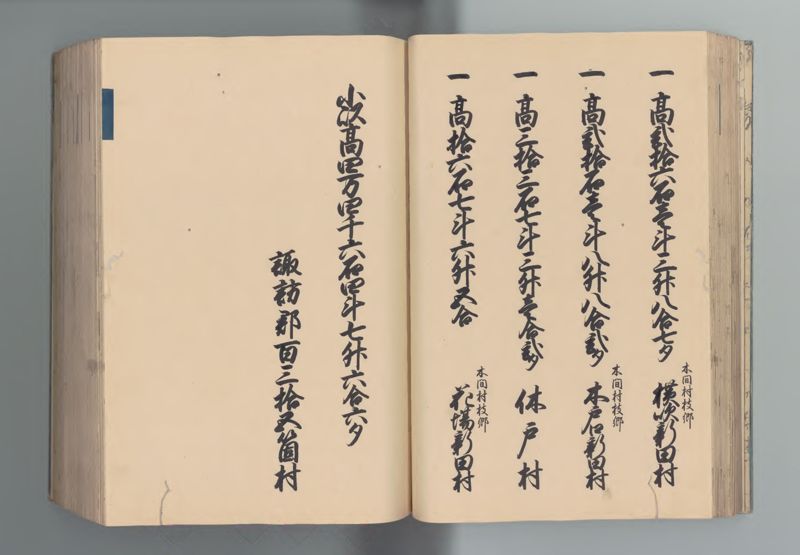 一 高弐拾六石壱斗三升八合七夕
本間村枝郷
横吹新田村
一 高弐拾石壱斗八升八合弐夕
本間村枝郷
木戸口新田村
一 高三拾三石七斗三升壱合弐夕 休戸村
一 高拾六石七斗六升五合
本間村枝郷
花場新田村
小以高四万四千六石四斗七升六合六夕
諏訪郡百三拾五箇村